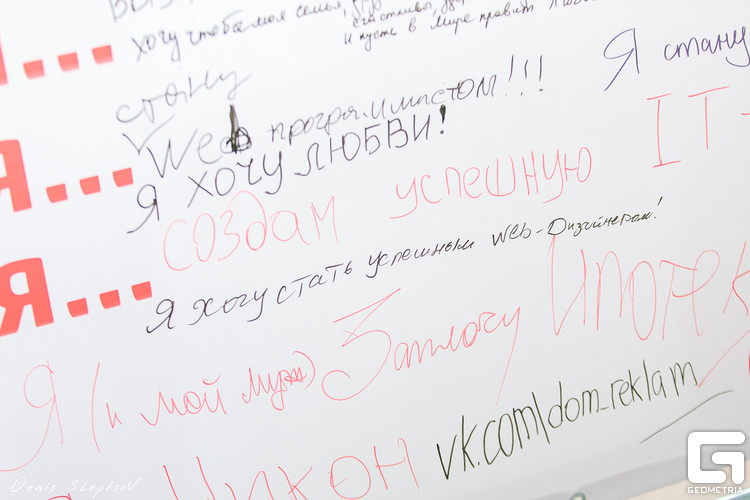 Я...
хочу чтобы моя семья,
счастливы,
и пусть в мире правит
Я стану
стану
Я...
Web программистом!!!
Я ХОЧУ ЛЮБВИ!
создам успешную IT-
Я...
Я хочу стать успешным web-Дизайнером!
Я (и мой муж) Заплачу ИПОТЕК
vk.com\dom_reklam
Никон
Denis Sleptsov
G
GEOMETRIA